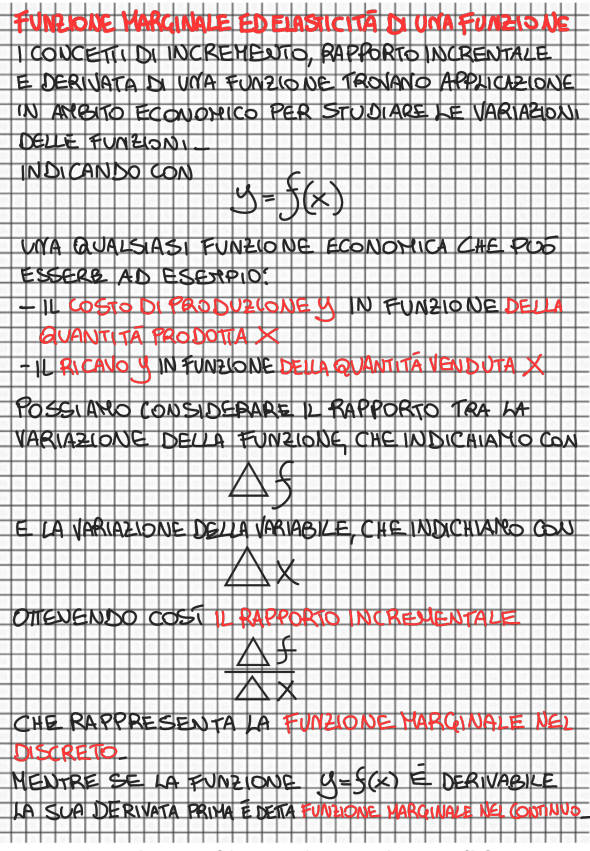 FUNZIONE MARGINALE ED ELASTICITÀ DI UNA FUNZIONE
I CONCETTI DI INCREMENTO, RAPPORTO INCRENTALE
E DERIVATA DI UNA FUNZIONE TROVANO APPLICAZIONE
IN AMBITO ECONOMICO PER STUDIARE LE VARIAZIONI
DELLE FUNZIONI_
INDICANDO CON
y=f(x)
UNA QUALSIASI FUNZIONE ECONOMICA CHE PUÒ
ESSERE AD ESEMPIO:
- IL COSTO DI PRODUZIONE y IN FUNZIONE DELLA
QUANTITÀ PRODOTTA X
- IL RICAVO y IN FUNZIONE DELLA QUANTITÀ VENDUTA X
POSSIAMO CONSIDERARE IL RAPPORTO TRA LA
VARIAZIONE DELLA FUNZIONE, CHE INDICHIAMO CON
△f
E LA VARIAZIONE DELLA VARIABILE, CHE INDICHIAMO CON
△x
OTTENENDO COSÌ IL RAPPORTO INCREMENTALE
△f
△x
CHE RAPPRESENTA LA FUNZIONE MARGINALE NEL
DISCRETO_
MENTRE SE LA FUNZIONE y=f(x) È DERIVABILE
LA SUA DERIVATA PRIMA È DETTA FUNZIONE MARGINALE NEL CONTINUO_